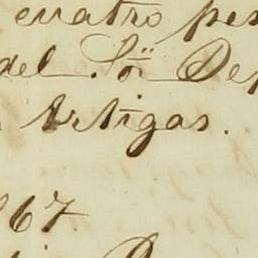 cuatro pes
del Sõr Dep
Artigas.
67